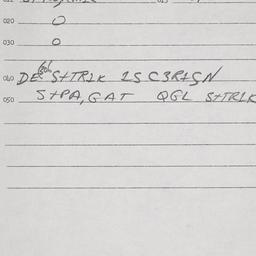 020 0
030 0
040 DE S+TR1K 1S C3R+GN
050 S+PA, GAT QGL S+TR1K